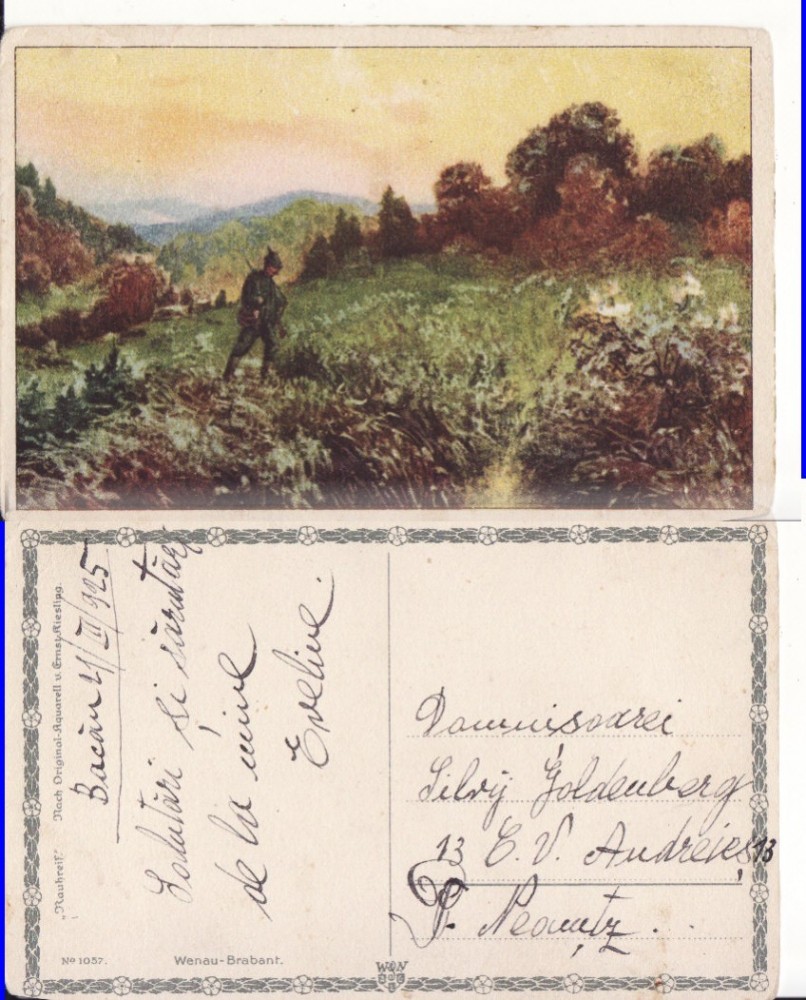 „Rauhreif.“ Nach Original-Aquarell v. Ernst Kiesling.
Bacău 21/III/925
Salutări si sărutări
de la mine
Eveline.
Nº 1057.
Wenau-Brabant.
W N
Domnisoarei
Silvy Goldenberg
13 C. V. Andreieș 13
P. Neamtz